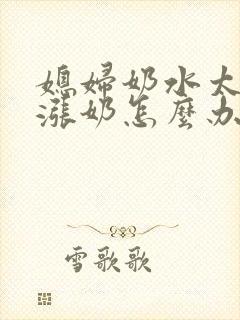 媳婦奶水太
漲奶怎麼办
雪歌歌